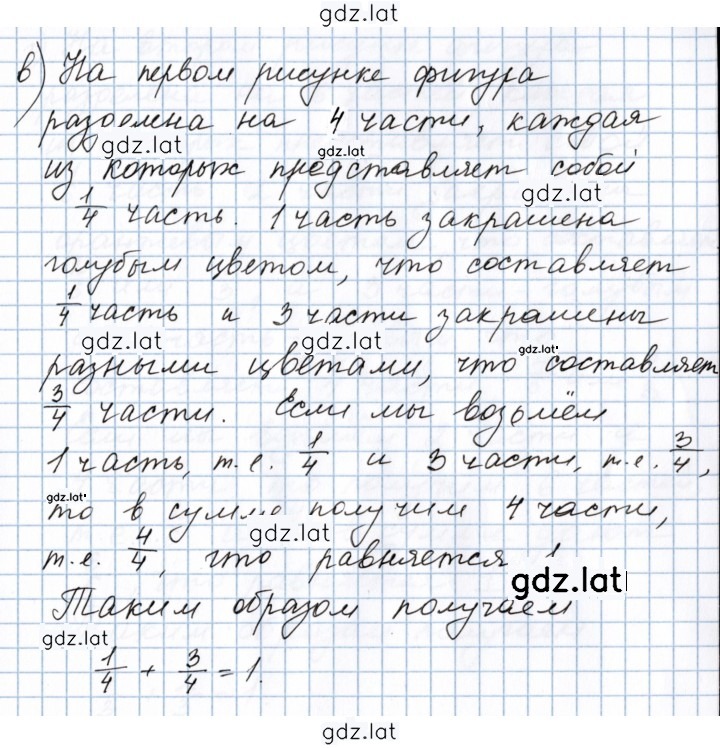 gdz.lat
в) На первом рисунке фигура
разделена на 4 части, каждая
gdz.lat gdz.lat
из которых представляет собой
gdz.lat
1/4 часть. 1 часть закрашена
голубым цветом, что составляет
1/4 часть и 3 части закрашены
gdz.lat gdz.lat
разными цветами, что составляет
3/4 части. Если мы возьмём
1 часть, т.е. 1/4 и 3 части, т.е. 3/4,
gdz.lat
то в сумме получим 4 части,
gdz.lat
т.е. 4/4, что равняется 1
gdz.lat
Таким образом получаем
gdz.lat
1/4 + 3/4 = 1.
gdz.lat